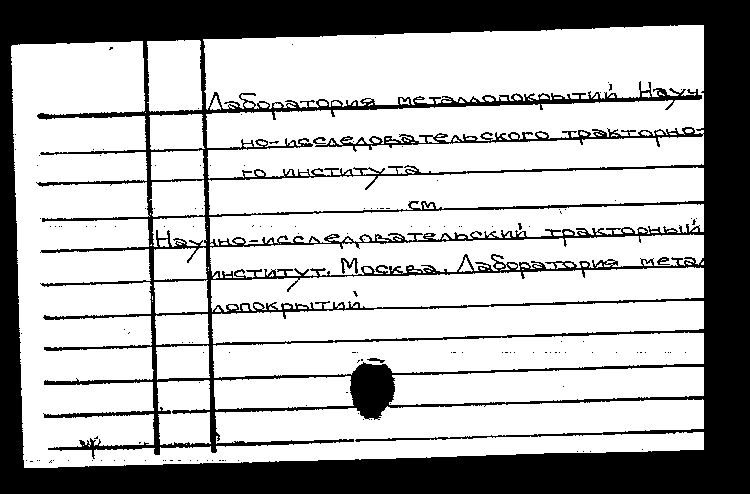 Лаборатория металлопокрытий Науч-
но-исследовательского тракторно-
го института.
см.
Научно-исследовательский тракторный
институт. Москва. Лаборатория метал
лопокрытий.